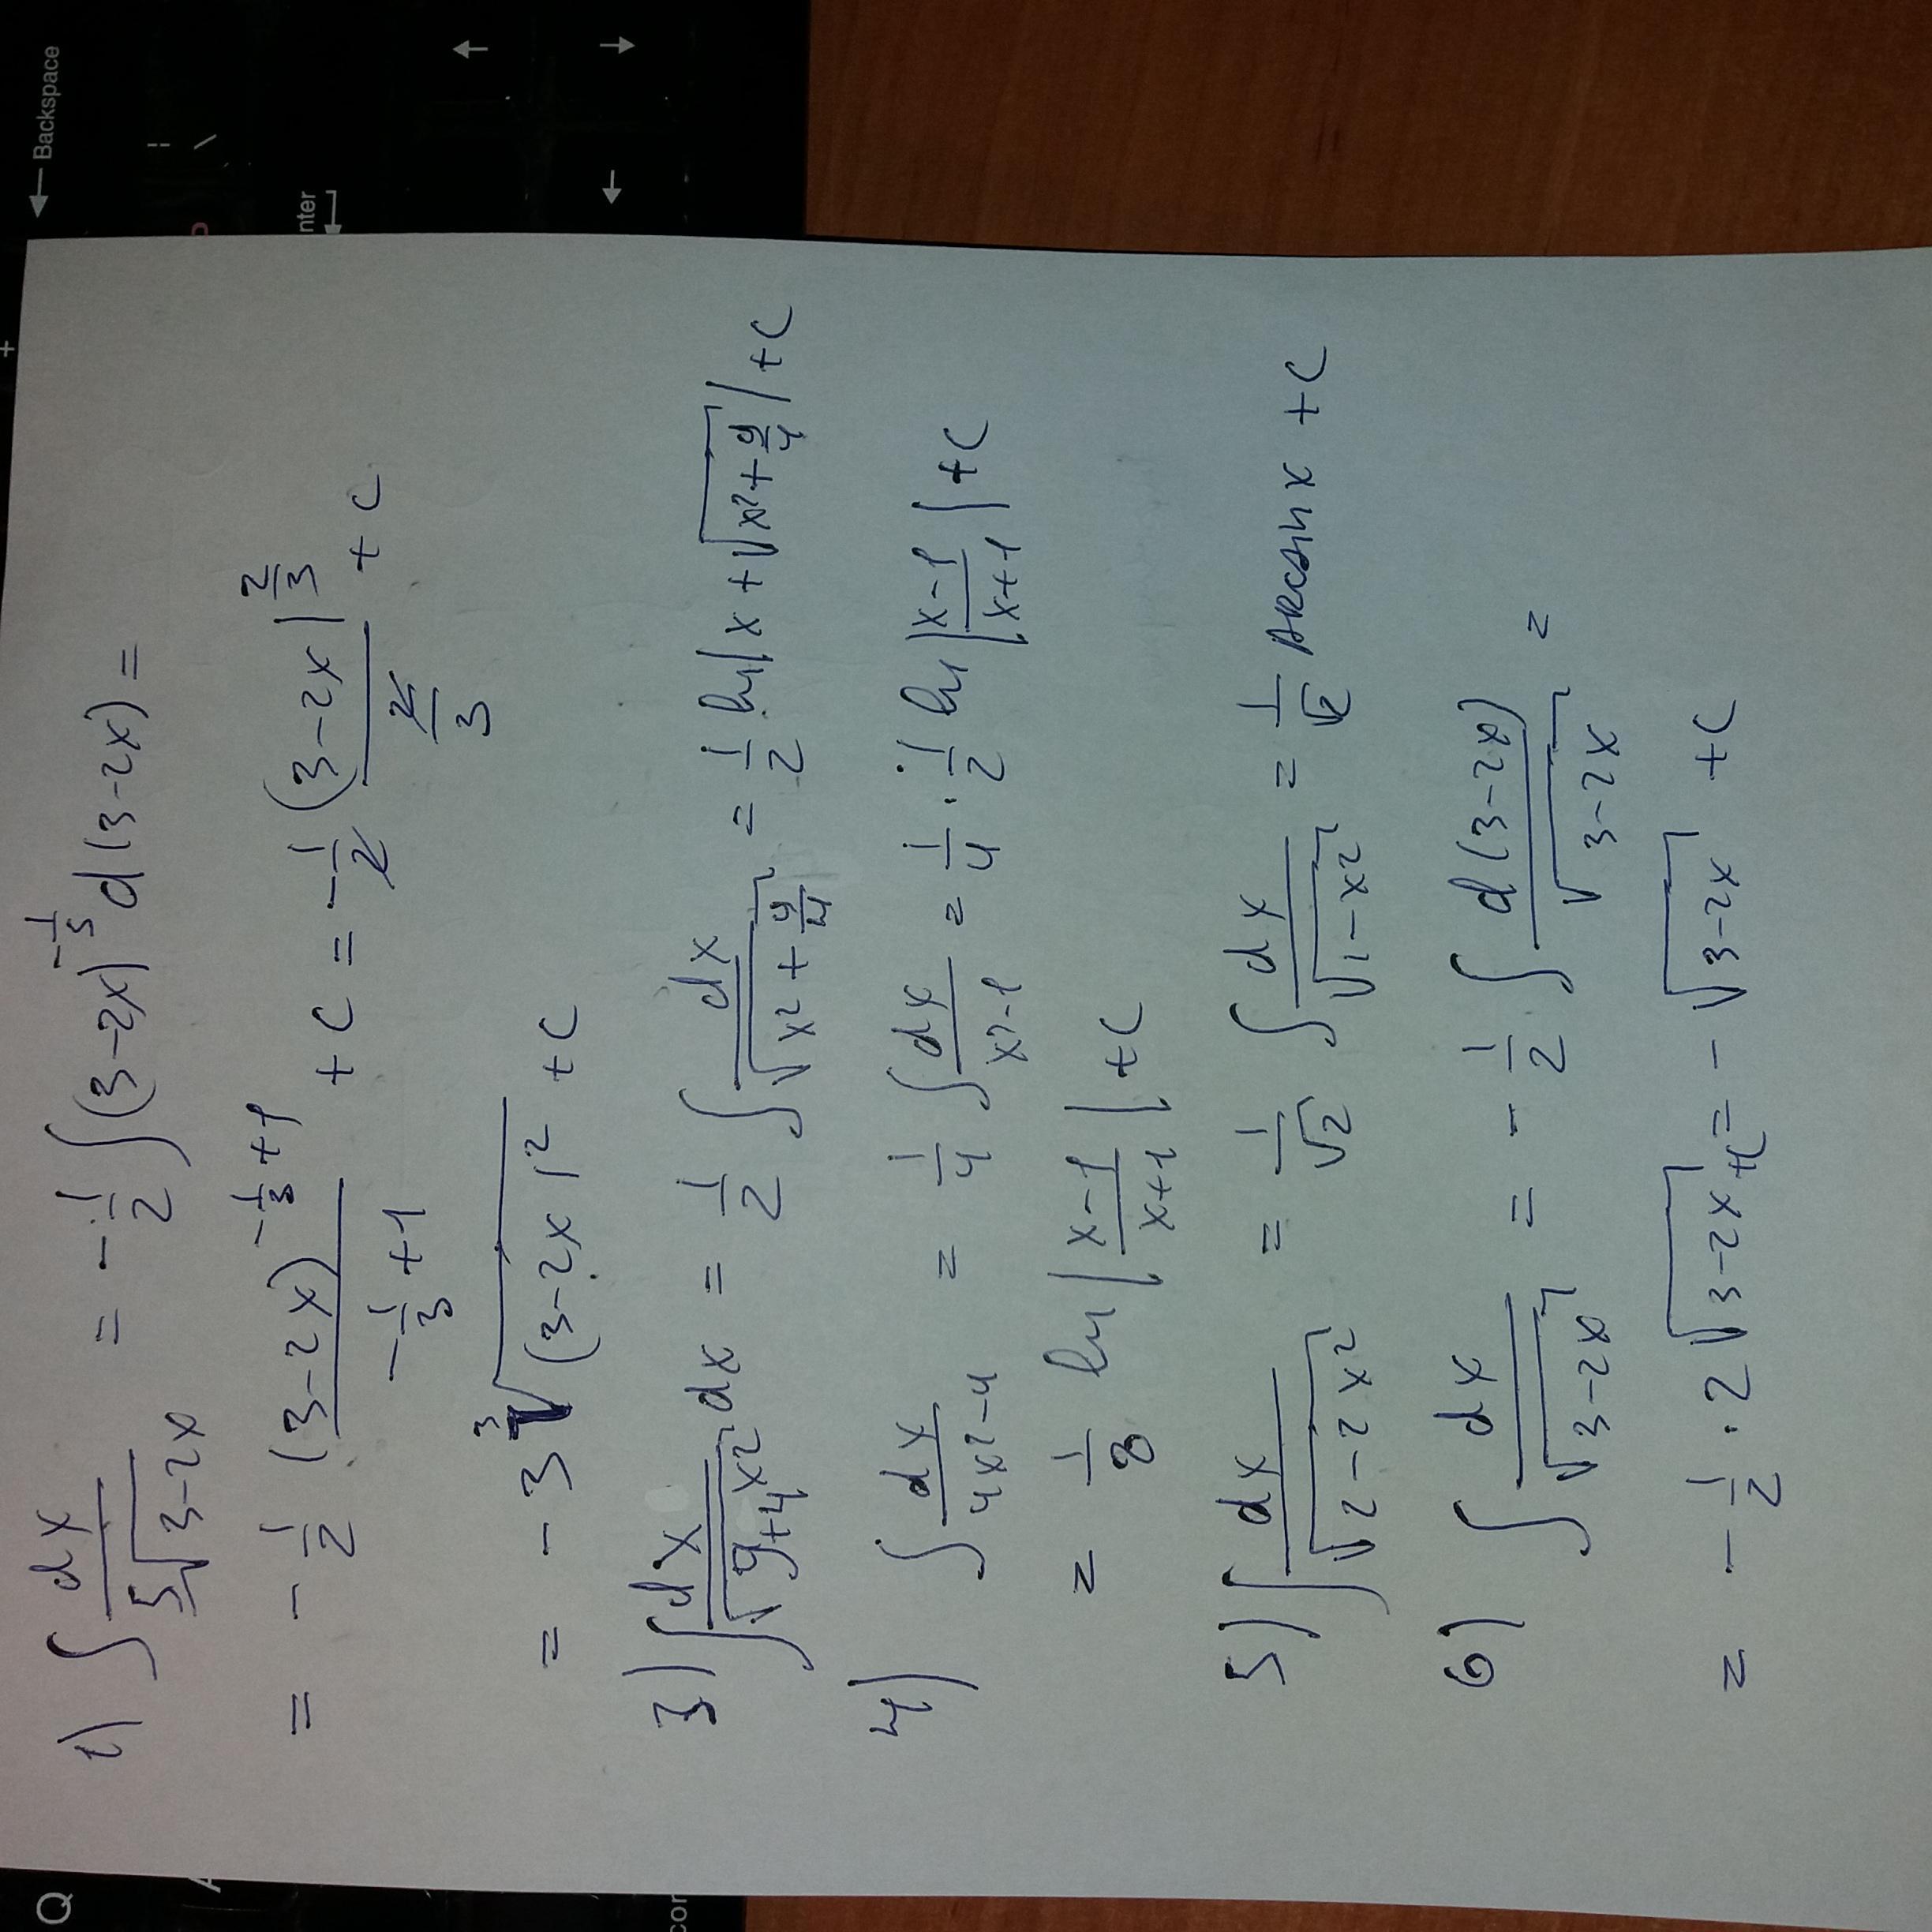 1) ∫ dx/⁵√(3-2x) = -1/2 ∫(3-2x)^(-1/5) d(3-2x) =
= -1/2 (3-2x)^(-1/3+1)/(-1/3+1) + C = -1/2 (3-2x)^(2/3)/(2/3) + C
= -3 ³√(3-2x)² + C
3) ∫ dx/√(9+4x²) dx = 1/2 ∫ dx/√(x²+9/4) = 1/2 ln|x+√(x²+9/4)| + C
4) ∫ dx/(4x²-4) = 1/4 ∫ dx/(x²-1) = 1/4 · 1/2 ln|(x-1)/(x+1)| + C
= 1/8 ln|(x-1)/(x+1)| + C
5) ∫ dx/√(2-2x²) = 1/√2 ∫ dx/√(1-x²) = 1/√2 arcsin x + C
6) ∫ dx/√(3-2x) = -1/2 ∫ d(3-2x)/√(3-2x) =
= -1/2 · 2√(3-2x) + C = -√(3-2x) + C
← Backspace
Q
+